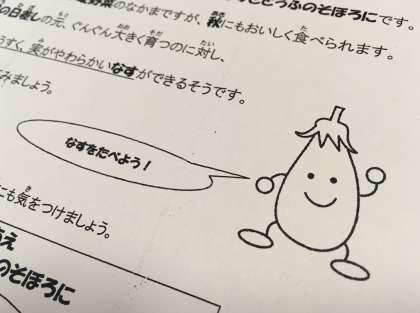 とうふのそぼろにです。
野菜のなかまですが、秋にもおいしく食べられます。
の日差しの元、ぐんぐん大きく育つのに対し、
うすく、実がやわらかいなすができるそうです。
みましょう。
なすをたべよう!
にも気をつけましょう。
あえ
のそぼろに